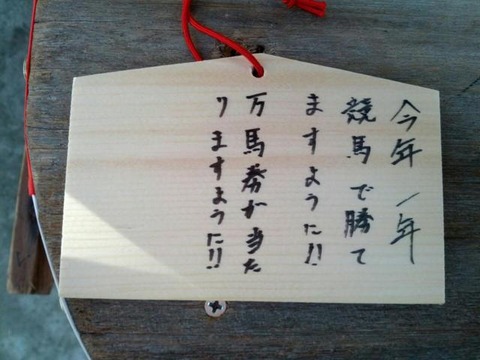 今年一年
競馬で勝て
ますように!!
万馬券が当た
りますように!!